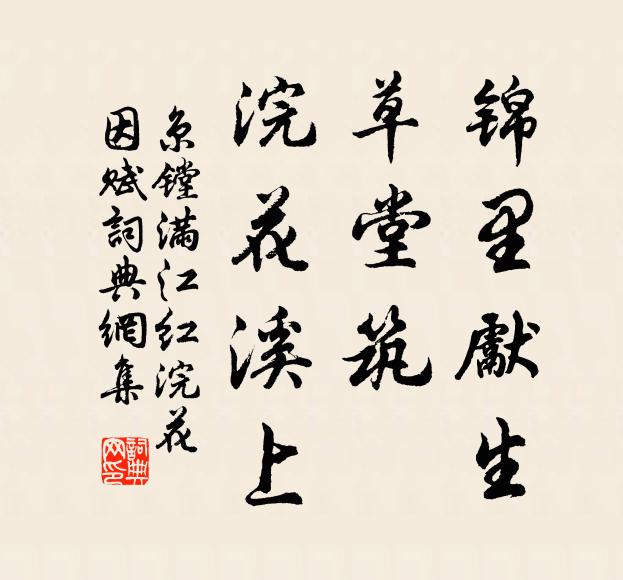 锦里献生
草堂筑
浣花溪上
京镗满江红浣花
因赋詞典網集
詞典网印